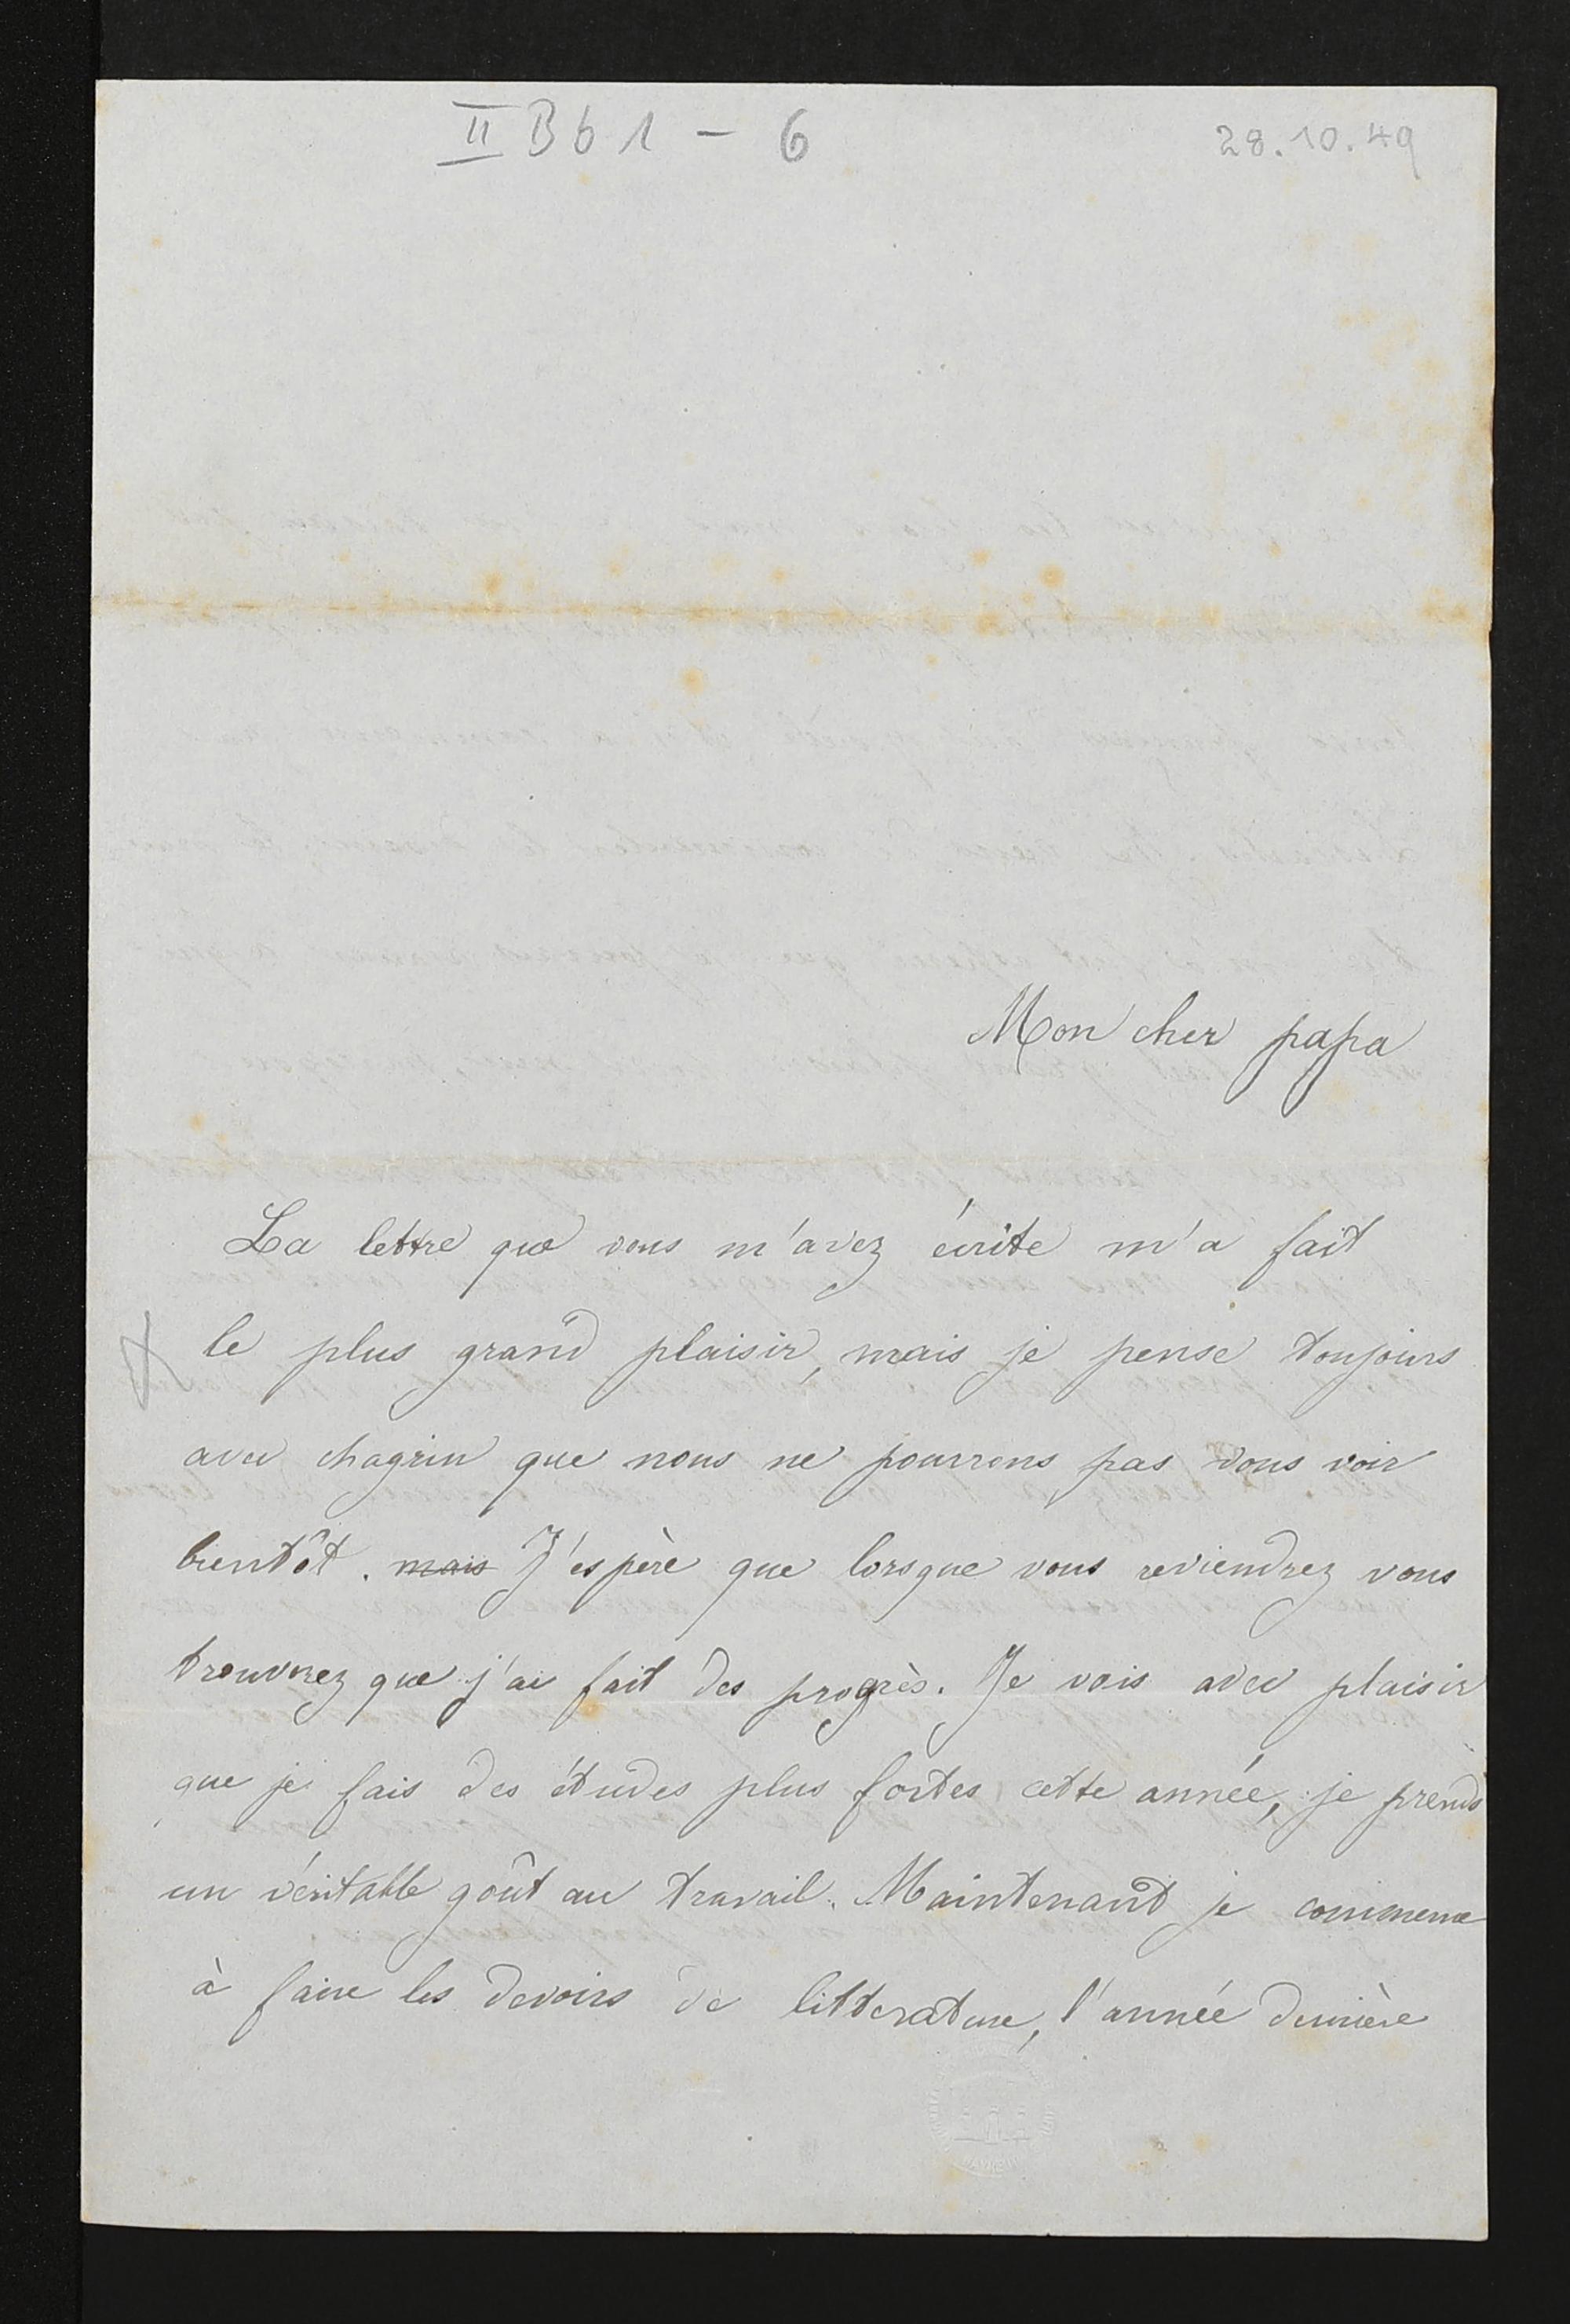 II B b 1 - 6
28.10.49
Mon cher papa
La lettre que vous m'avez écrite m'a fait
le plus grand plaisir, mais je pense toujours
avec chagrin que nous ne pourrons pas vous voir
bientôt. mais J'espère que lorsque vous reviendrez vous
trouverez que j'ai fait des progrès. Je vois avec plaisir
que je fais des études plus fortes cette année, je prends
un véritable goût au travail. Maintenant je commence
à faire les devoirs de litterature, l'année dernière